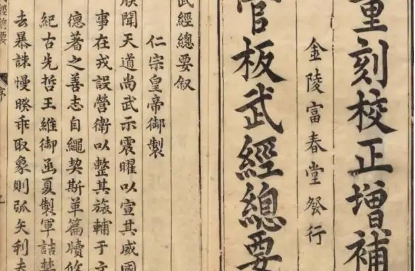 重刻校正增補
金陵富春堂發行
官板武經總要
武經總要叙
仁宗皇帝御製
朕聞天道尚武示震曜以宣其威國
事在戎設營衛以整其旅輔于文
德著之善志自繩契斯革篇牘攸
紀古先哲王維御函夏製軍詰禁
去暴誅慢揆乖取象則弧矢利夫